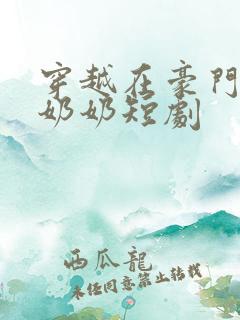 穿越在豪門
奶奶短劇
西瓜龍
未任同意禁止转载